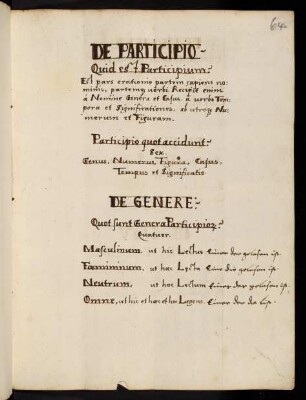 64.
DE PARTICIPIO.
Quid est Participium?
Est pars orationis partim capiens no-
minis, partemq verbi. Recipit enim
à Nomine Genera et Casus, à verbo Tem-
pora et Significationes, ab utroq Nu-
merum et Figuram.
Participio quot accidunt?
Sex.
Genus, Numerus, Figura, Casus,
Tempus et Significatio.
DE GENERE.
Quot sunt Genera Participioꝝ?
Quatuor.
Masculinum, ut hic Lectus Einer der gelesen ist.
Fœmininum, ut hæc Lecta Eine die gelesen ist.
Neutrum, ut hoc Lectum Eines das gelesen ist.
Omne, ut hic et hæc et hoc Legens. Einer der da list.